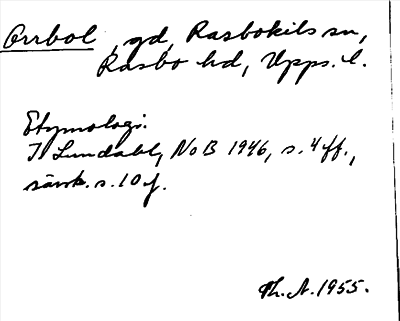 Orrbol, gd, Rasbokils sn,
Rasbo hd, Upps. l.
Etymologi.
I Lundahl, NoB 1946, s. 4 ff.,
särsk. s. 10 f.
Th. A. 1955.